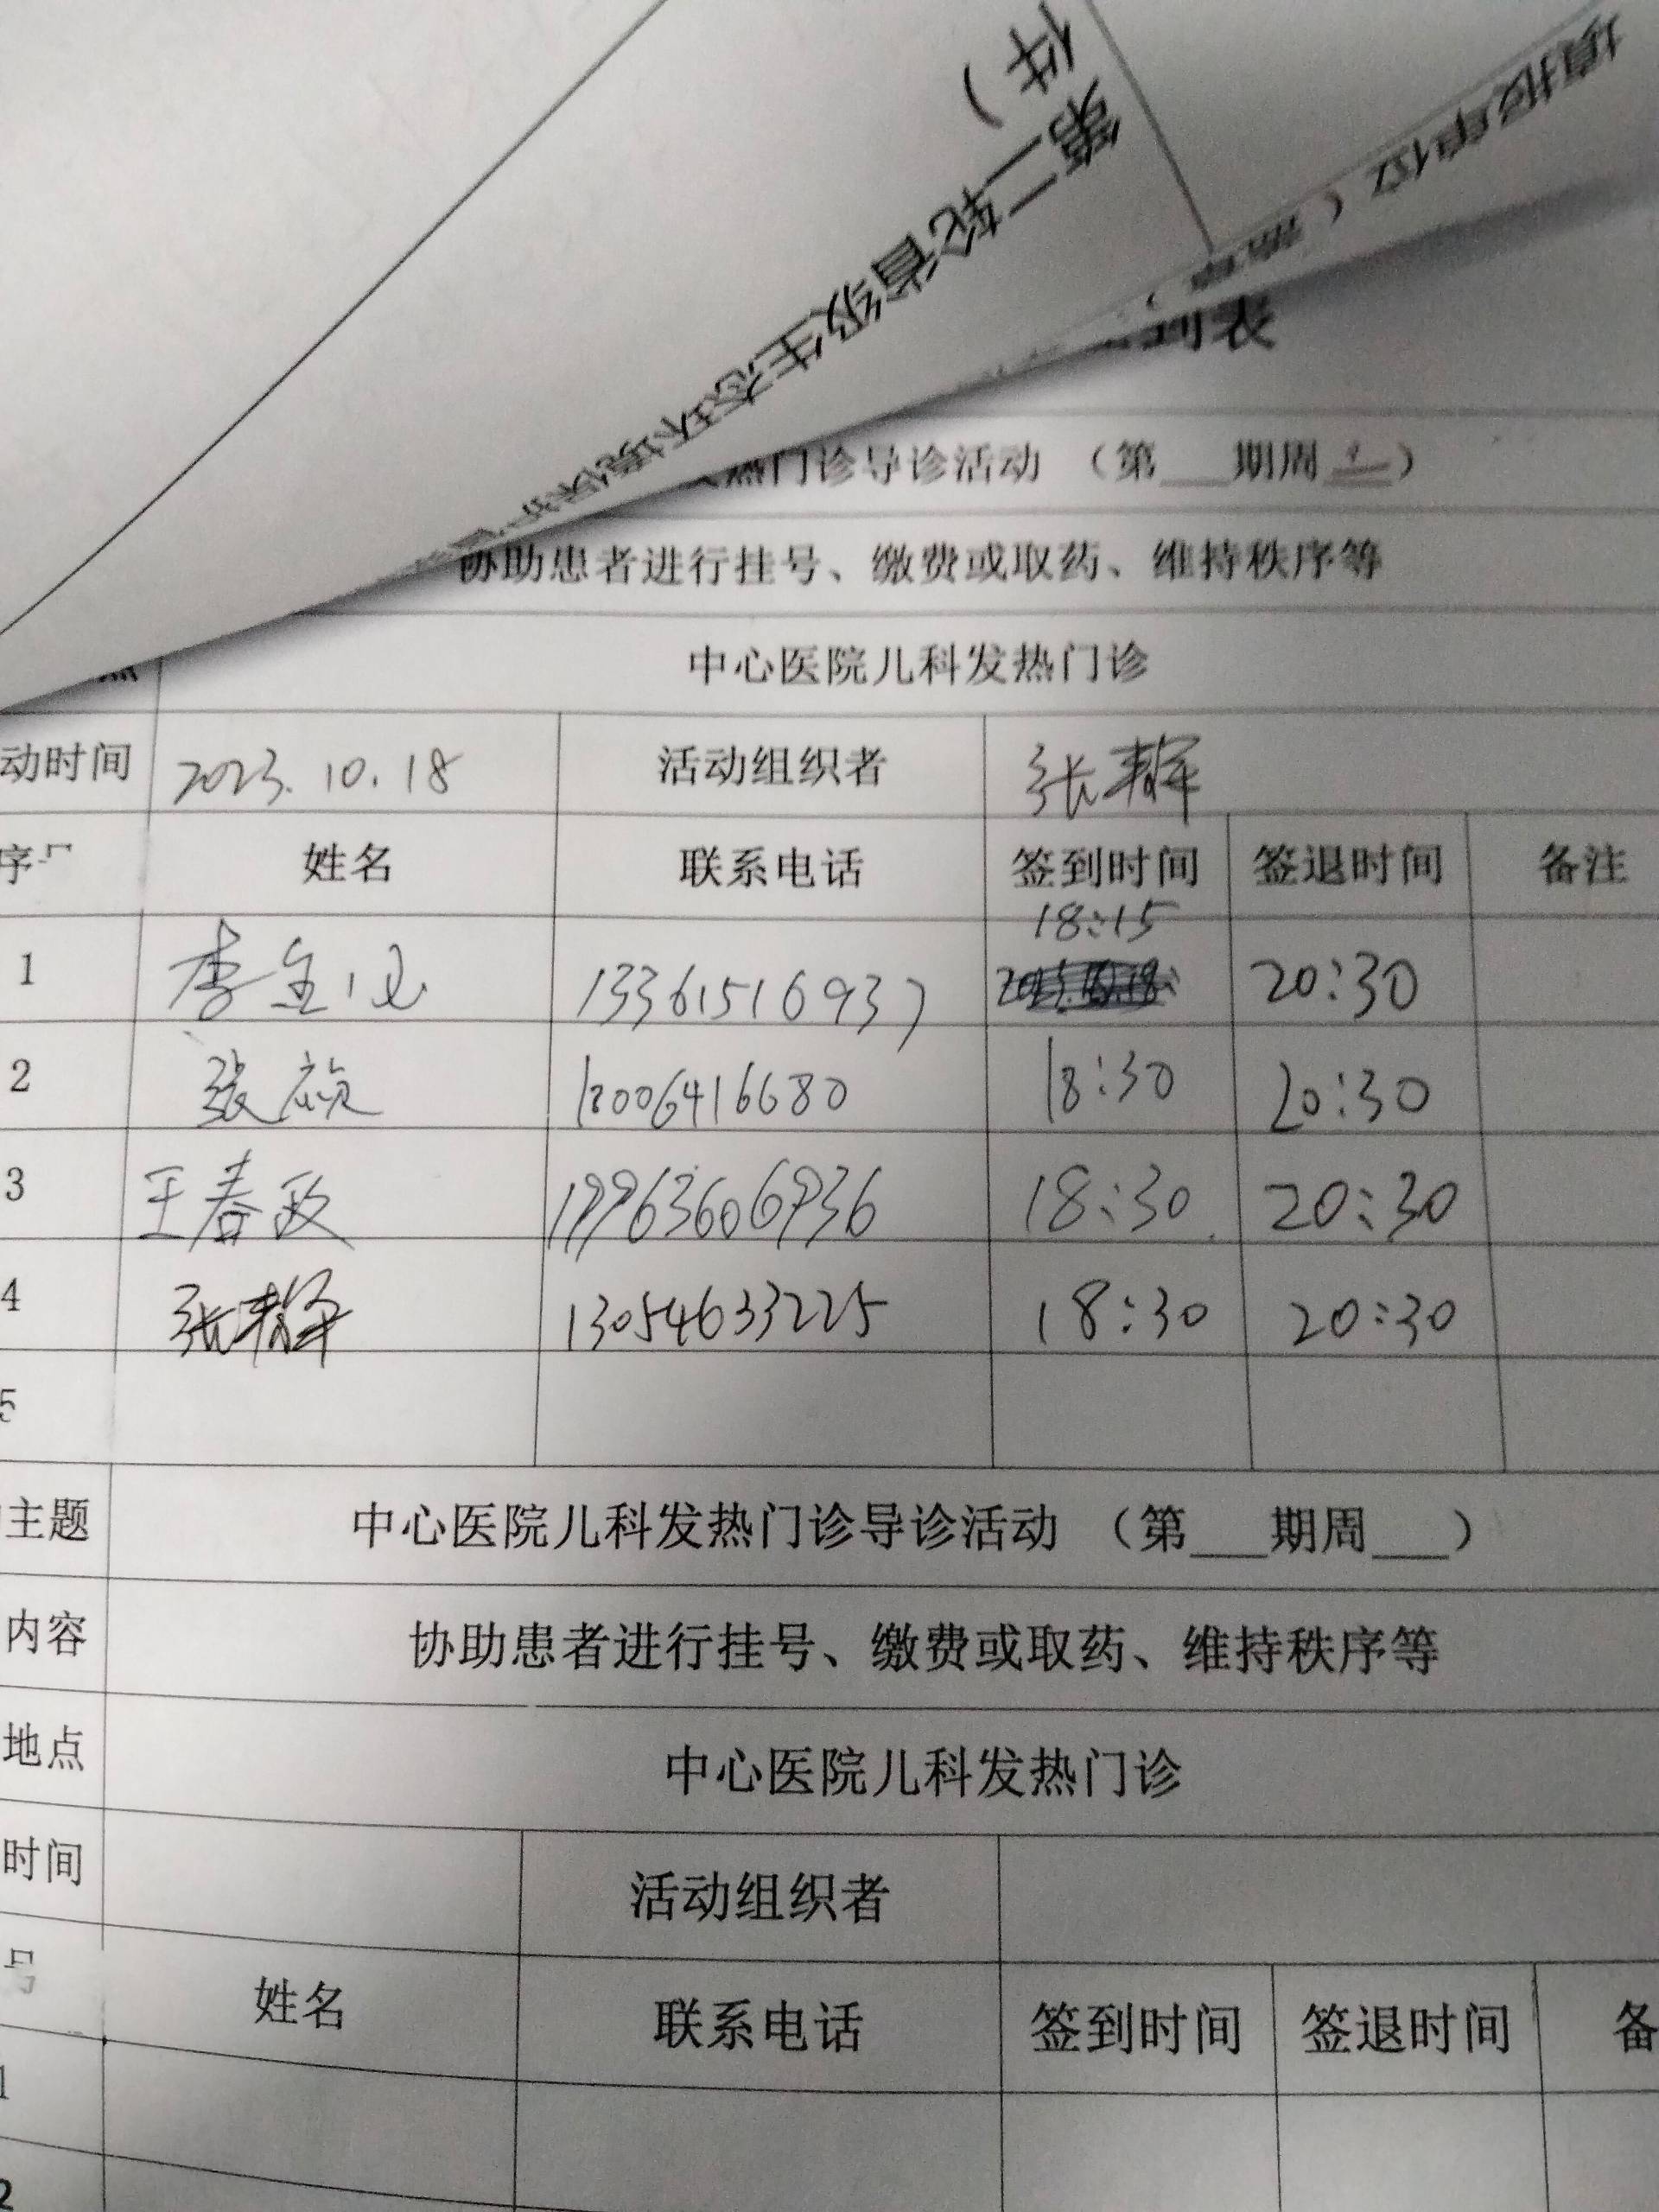 件）
第二轮省级生态环境保护
填报单位（盖章）
到表
热门诊导诊活动 （第___期周___）
协助患者进行挂号、缴费或取药、维持秩序等
中心医院儿科发热门诊
动时间 2023.10.18 活动组织者 张
序号 姓名 联系电话 签到时间 签退时间 备注
18:15
1 李 13361516937 20:30
2 张 18006416680 18:30 20:30
3 王春政 19963606936 18:30 20:30
4 张 13054633225 18:30 20:30
5
主题 中心医院儿科发热门诊导诊活动 （第___期周___）
内容 协助患者进行挂号、缴费或取药、维持秩序等
地点 中心医院儿科发热门诊
时间 活动组织者
号 姓名 联系电话 签到时间 签退时间 备
1
2